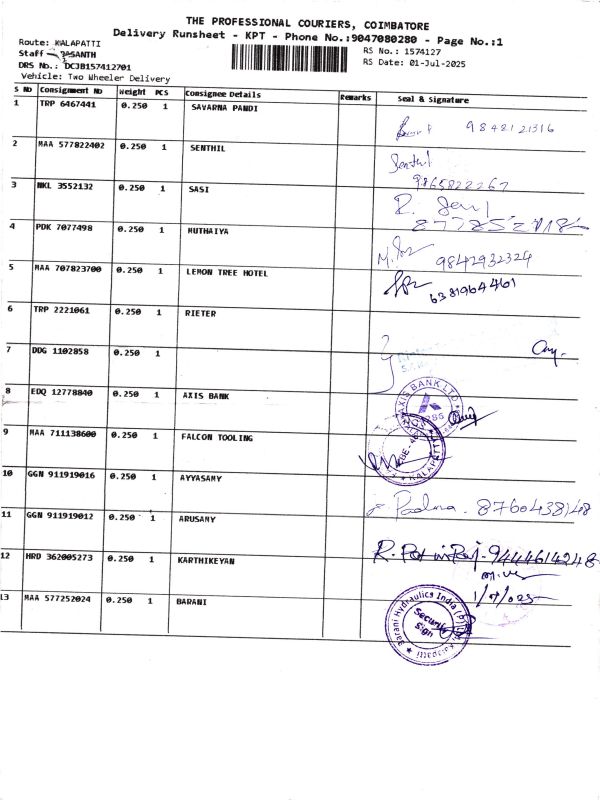 THE PROFESSIONAL COURIERS, COIMBATORE
Delivery Runsheet - KPT - Phone No.:9047080280 - Page No.:1
Route: KALAPATTI
RS No.: 1574127
Staff PRASANTH
RS Date: 01-Jul-2025
DRS No.: DCJB157412701
Vehicle: Two Wheeler Delivery
S No Consignment No Weight PCS Consignee Details Remarks Seal & Signature
1 TRP 6467441 0.250 1 SAVARNA PANDI
9848121316
2 MAA 577822402 0.250 1 SENTHIL
Senthil
9865822267
3 NKL 3552132 0.250 1 SASI
R.
4 PDK 7077498 0.250 1 MUTHAIYA
9842932324
5 MAA 707823700 0.250 1 LEMON TREE HOTEL
6381964461
6 TRP 2221061 0.250 1 RIETER
7 DDG 1102858 0.250 1
8 EDQ 12778840 0.250 1 AXIS BANK
AXIS BANK LTD
9 MAA 711138600 0.250 1 FALCON TOOLING
KALAPATTI
10 GGN 911919016 0.250 1 AYYASAMY
Padma. 8760438148
11 GGN 911919012 0.250 1 ARUSAMY
12 HRD 362005273 0.250 1 KARTHIKEYAN
9444614248
13 MAA 577252024 0.250 1 BARANI
Barani Hydraulics India (P)
Security
Sign